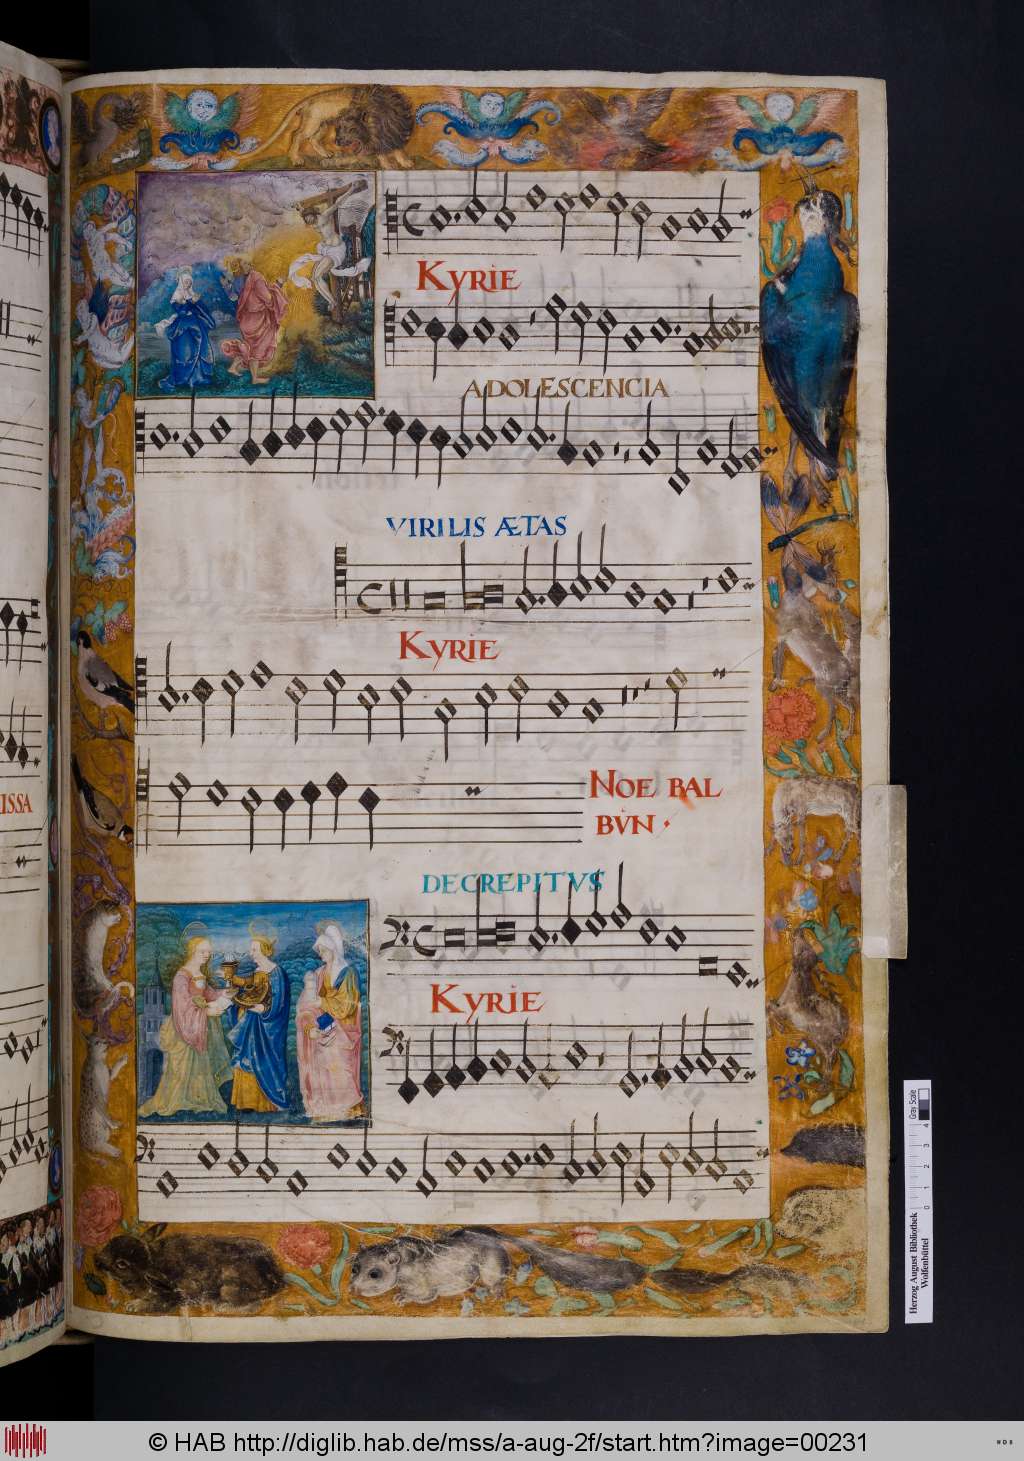 Kyrie
ADOLESCENCIA
VIRILIS ÆTAS
Kyrie
ISSA
NOE BAL
BVN·
DECREPITVS
Kyrie
Gray Scale
0 1 2 3 4
Herzog August Bibliothek
Wolfenbüttel
© HAB http://diglib.hab.de/mss/a-aug-2f/start.htm?image=00231